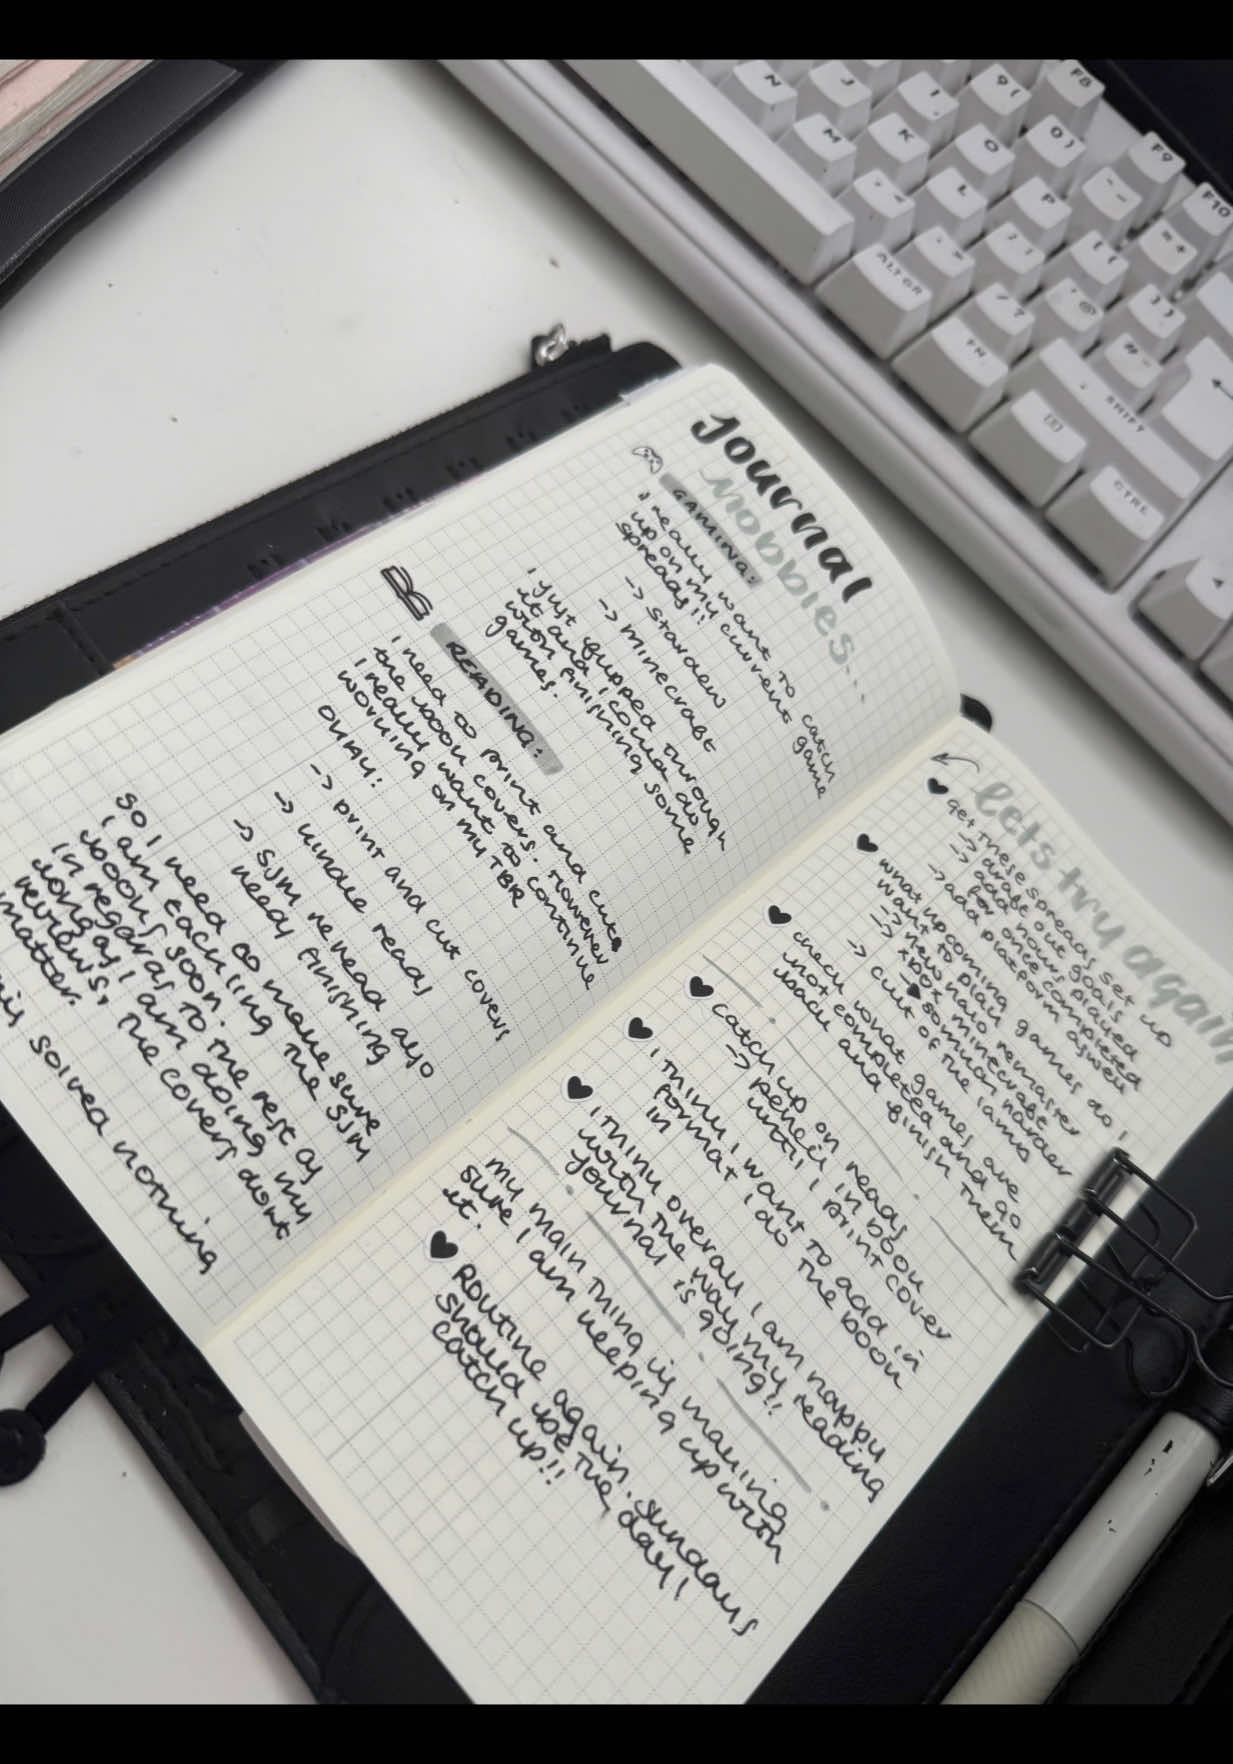 Journal
Hobbies...
GAMING:
I really want to catch
up on my current game
spreads!!
-> Stardew
-> Minecraft
I just flipped through
it and I could do
with finishing some
games.
READING:
I need to print and cut
the book covers. However
I really want to continue
working on my TBR
okay:
-> print and cut covers
-> kindle reads
-> SJM reread also
need finishing
So I need to make sure
I am tackling the SJM
books soon. In
in regards to the rest as
long as I am doing my
reviews, the covers dont
matter.
solved nothing
lets try again
get these spreads set up
-> draft out goals
-> add hours played
for once completed
-> add platform aswell
what upcoming games do I
want to play
-> new halo remaster
-> xbox minecraft
-> cult of the lamb
check what games are
not completed and go
back and finish them
catch up on reads
-> pencil in book
until I print cover
I think I want to add in
format I do the book
in
I think overall I am happy
with the way my reading
journal is going!!
my main thing is making
sure I am keeping up with
it.
Routine again. Sundays
should be the day!
catch up!!
N
J
I
9 (
F8
M
K
O
0 )
F9
, <
L
P
- _
F10
. >
; :
[ {
= +
ALT GR
/ ?
' @
] }
FN
# ~
SHIFT
CTRL